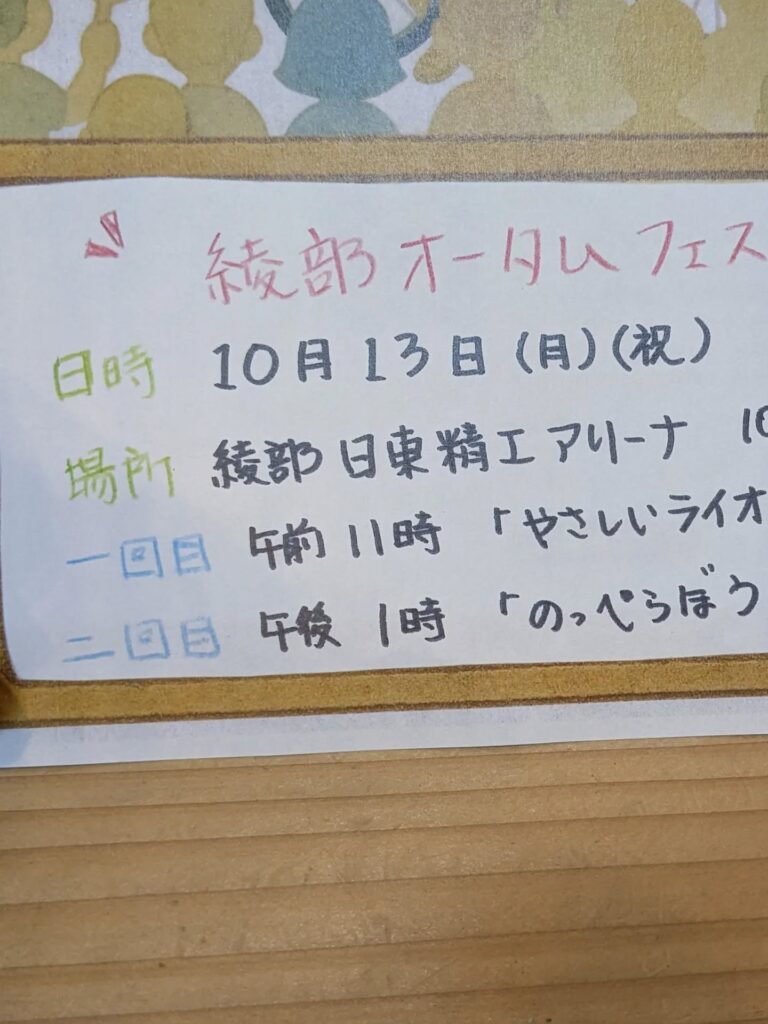 綾部オータムフェス
日時 10月13日(月)(祝)
場所 綾部日東精工アリーナ 10
一回目 午前11時 「やさしいライオ
二回目 午後1時 「のっぺらぼう